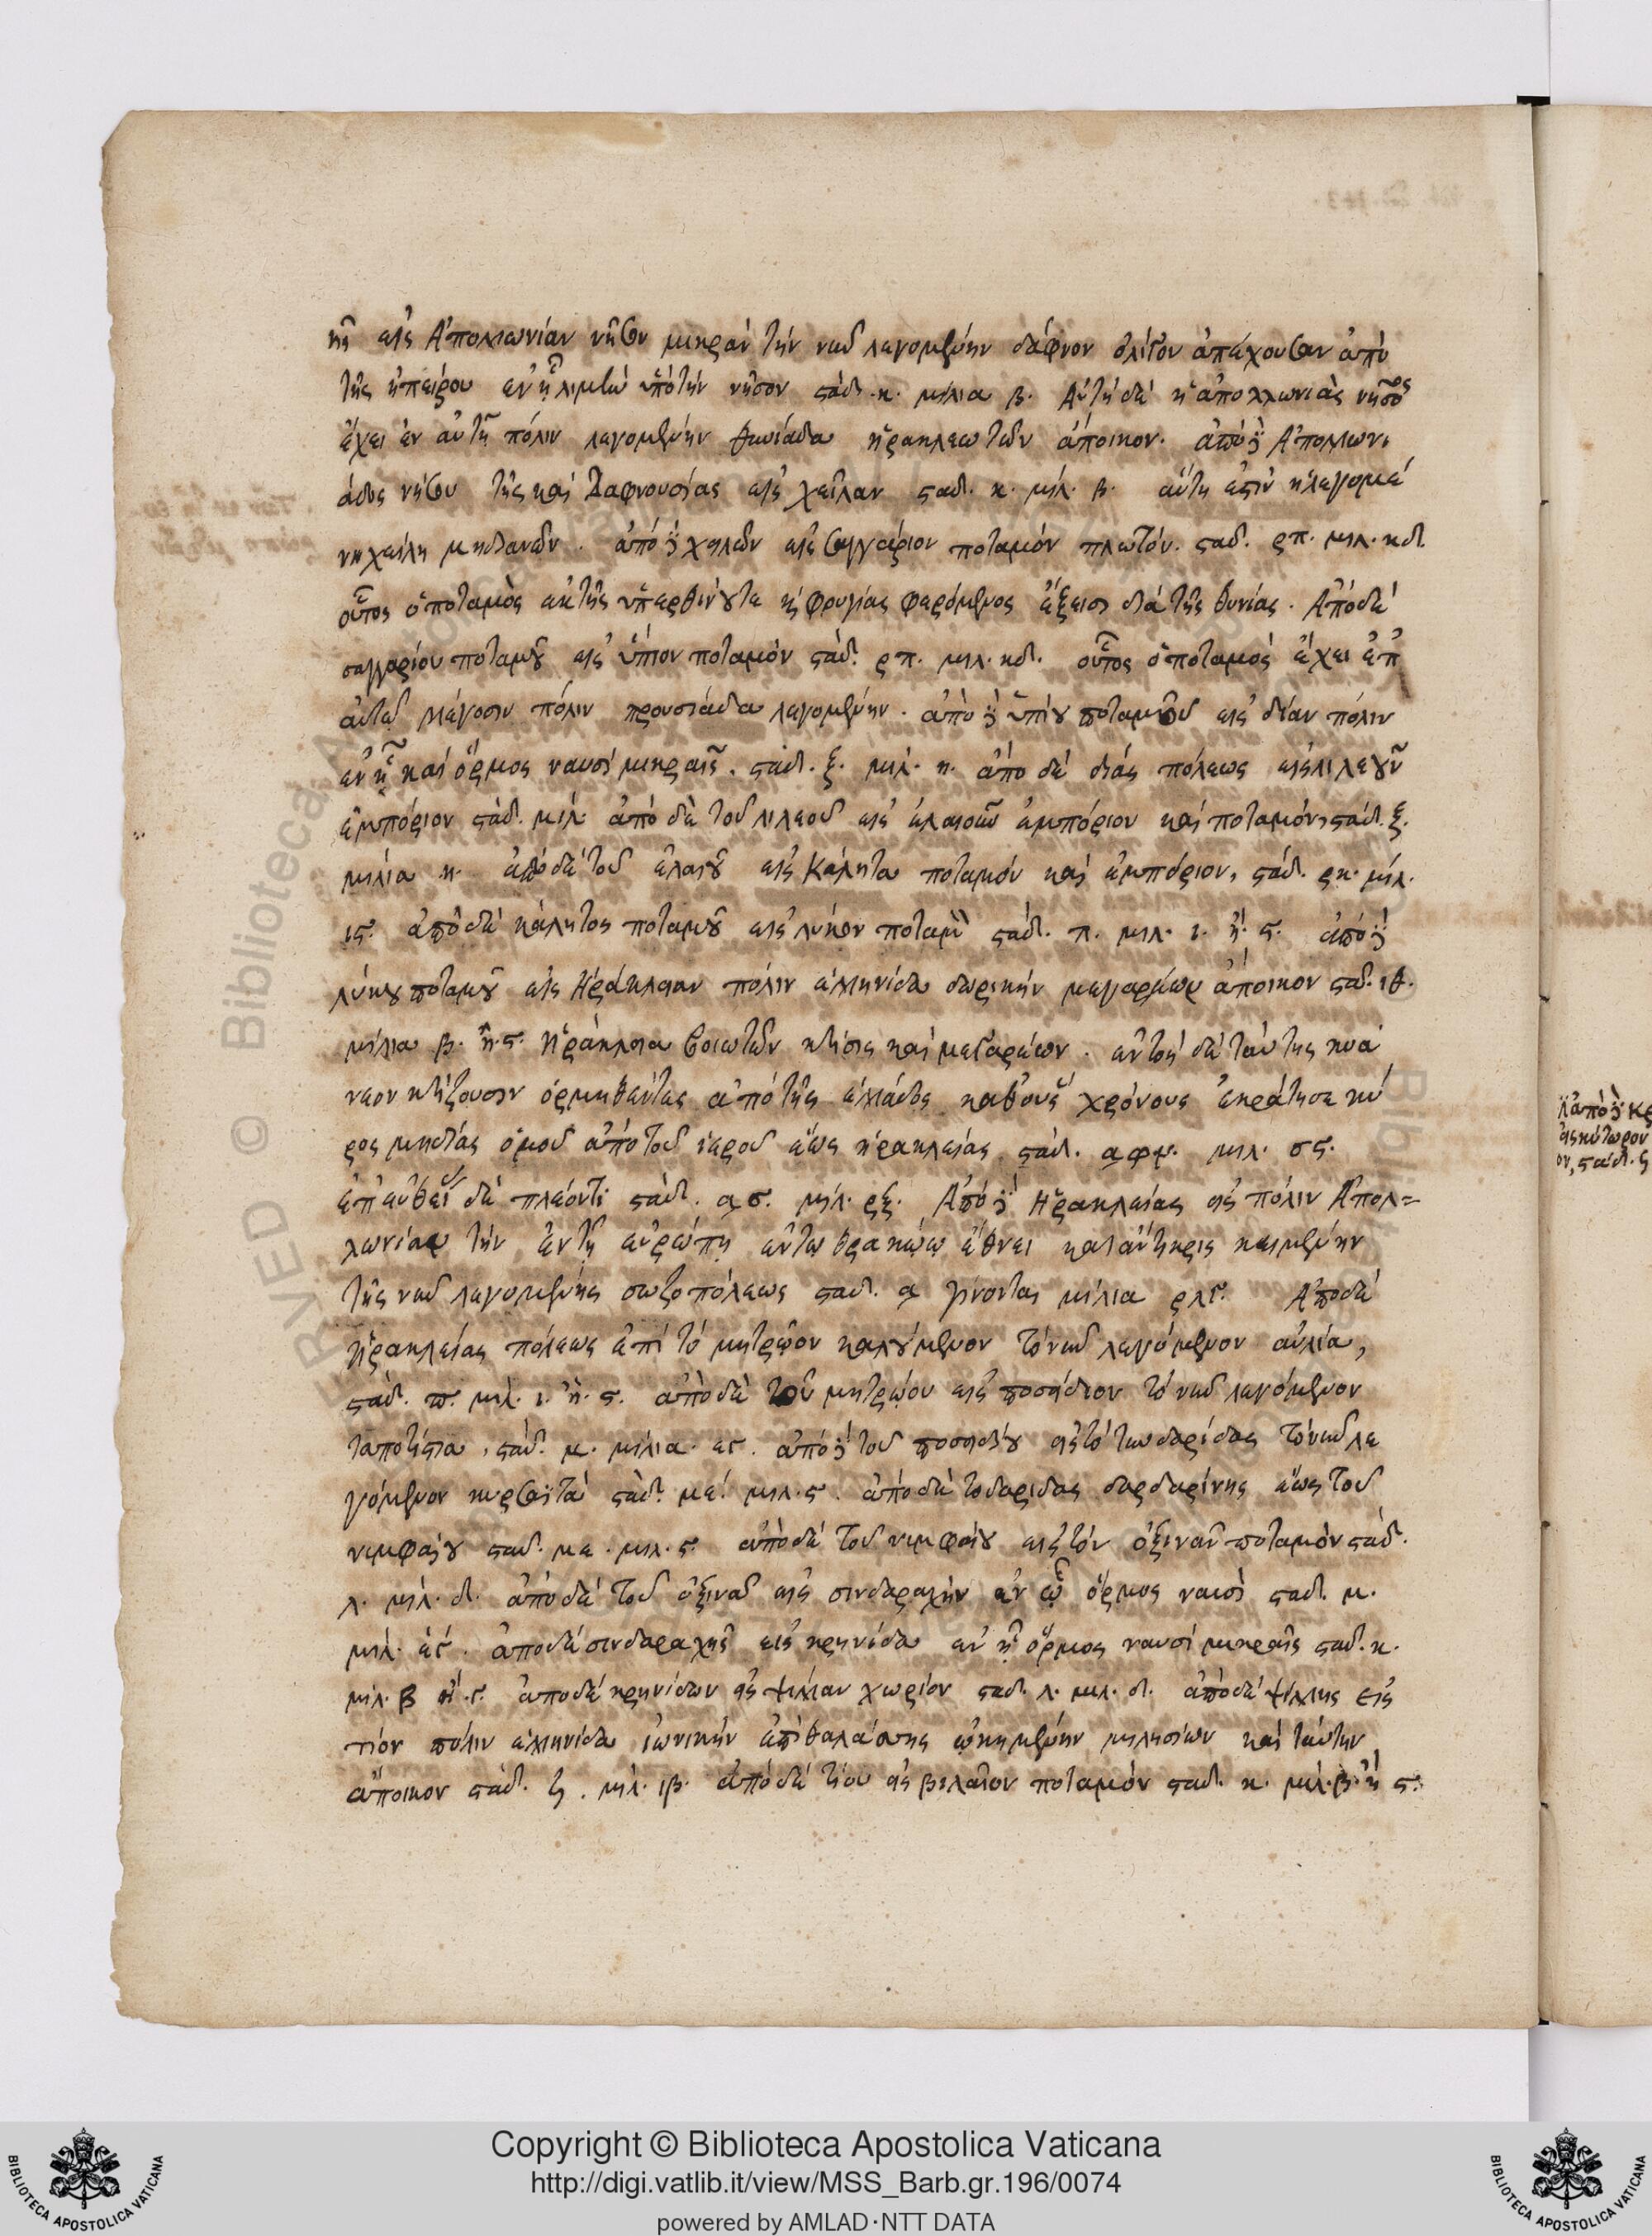 νῆς εἰς Ἀπολλωνίαν νῆσον μικρὰν τὴν νῦν λεγομένην δάφνον ὀλίγον ἀπέχουσαν ἀπὸ
τῆς ἠπείρου ἐν ᾗ λιμὴν ὑπὸ τὴν νῆσον στάδ. κ. μίλια β. Αὐτὴ δὲ ἡ ἀπολλωνιὰς νῆσος
ἔχει ἐν αὐτῇ πόλιν λεγομένην θυνιάδα ἡρακλεωτῶν ἄποικον. ἀπὸ δὲ Ἀπολλωνι
άδος νήσου τῆς καὶ Δαφνουσίας εἰς χεῖλαν σταδ. κ. μιλ. β. αὕτη ἐστὶν ἡ λεγομέ
νη χείλη μηδιανῶν. ἀπὸ δὲ χηλῶν εἰς σαγγάριον ποταμὸν πλωτόν. σταδ. ρπ. μιλ. κδ.
οὗτος ὁ ποταμὸς ἐκ τῆς ὑπὲρ θινούς τε καὶ φρυγίας φερόμενος ἔξεισι διὰ τῆς θυνίας. Ἀπὸ δὲ
σαγγαρίου ποταμοῦ εἰς ὕπιον ποταμὸν στάδ. ρπ. μιλ. κδ. οὗτος ὁ ποταμὸς ἔχει ἐπ
αὐτοῦ μέγοσιν πόλιν προυσιάδα λεγομένην. ἀπὸ δὲ ὑπίου ποταμοῦ εἰς δίαν πόλιν
ἐν ᾗ καὶ ὅρμος ναυσὶ μικραῖς. σταδ. ξ. μιλ. η. ἀπὸ δὲ διάς πόλεως εἰς λιλεοῦν
ἐμπόριον στάδ. μιλ. ἀπὸ δὲ τοῦ λιλεοῦ εἰς ἐλαιοῦν ἐμπόριον καὶ ποταμόν, στάδ. ξ.
μίλια η. ἀπὸ δὲ τοῦ ἐλαιοῦ εἰς Κάλητα ποταμὸν καὶ ἐμπόριον, στάδ. ρκ. μίλ.
ις. ἀπὸ δὲ κάλητος ποταμοῦ εἰς λύκον ποταμὸν στάδ. π. μιλ. ι. ἥ. ς. ἀπὸ δὲ
λύκου ποταμοῦ εἰς Ἡράκλειαν πόλιν ἑλληνίδα δωρικὴν μεγαρέων ἄποικον σταδ. ιθ.
μίλια β. ἥ. ς. Ἡράκλεια βοιωτῶν κτίσις καὶ μεγαρέων. ἐντὸς δὲ ταύτης κυα
νεον κτίζουσιν ὁρμηθέντες ἀπὸ τῆς ἑλλάδος καθ' οὓς χρόνους ἐκράτησε κύ
ρος μηδίας ὁμοῦ ἀπὸ τοῦ ἱεροῦ ἕως ἡρακλείας στάδ. αφμ. μιλ. σς.
ἐπ' εὐθεῖ δὲ πλέοντι στάδ. ασ. μιλ. ρξ. Ἀπὸ δὲ Ἡρακλείας εἰς πόλιν Ἀπολ=
λωνίαν τὴν ἐν τῇ εὐρώπῃ ἐν τῷ θρακίῳ ἔθνει κατάντικρις κειμένην
τῆς νῦν λεγομένης σωζοπόλεως σταδ. α γίνονται μίλια ρλς. Ἀπὸ δὲ
Ἡρακλείας πόλεως ἐπὶ τὸ μητρῷον καλούμενον τὸ νῦν λεγόμενον αὐλία,
στάδ. π. μιλ. ι. ἥ. ς. ἀπὸ δὲ τοῦ μητρῴου εἰς ποσήδιον τὸ νῦν λεγόμενον
ταποτίστα, στάδ. μ. μίλια. ες. ἀπὸ δὲ τοῦ ποσηδίου εἰς τὸ τυνδαρίδας τὸ νῦν λε
γόμενον κυρσαϊτὰ στάδ. με. μιλ. ς. ἀπὸ δὲ τοδαριδας δαρδαρίνης ἕως τοῦ
νιμφαίου σταδ. με. μιλ. ς. ἀπὸ δὲ τοῦ νιμφαίου εἰς τὸν ὀξιναν ποταμὸν στάδ.
λ. μιλ. δ. ἀπὸ δὲ τοῦ ὀξινα εἰς σινδαραχὴν ἐν ᾧ ὅρμος ναυσὶ σταδ. μ.
μιλ. ες. ἀπὸ δὲ σινδαραχῆς εἰς κρηνίδα ἐν ᾗ ὅρμος ναυσὶ μικραῖς σταδ. κ.
μιλ. β ἥ. ς. ἀπὸ δὲ κρηνίδων εἰς ψίλλαν χωρίον σταδ. λ. μιλ. δ. ἀπὸ δὲ ψίλλης εἰς
τίον πόλιν ἑλληνίδα ἰωνικὴν ἐπὶ θαλάσσης ᾠκημένην μιλησίων καὶ ταύτην
ἄποικον στάδ. ϟ. μιλ. ιβ. ἀπὸ δὲ τίου εἰς βιλαῖον ποταμὸν σταδ. κ. μιλ. β. ἥ ς.
Copyright © Biblioteca Apostolica Vaticana
http://digi.vatlib.it/view/MSS_Barb.gr.196/0074
powered by AMLAD·NTT DATA